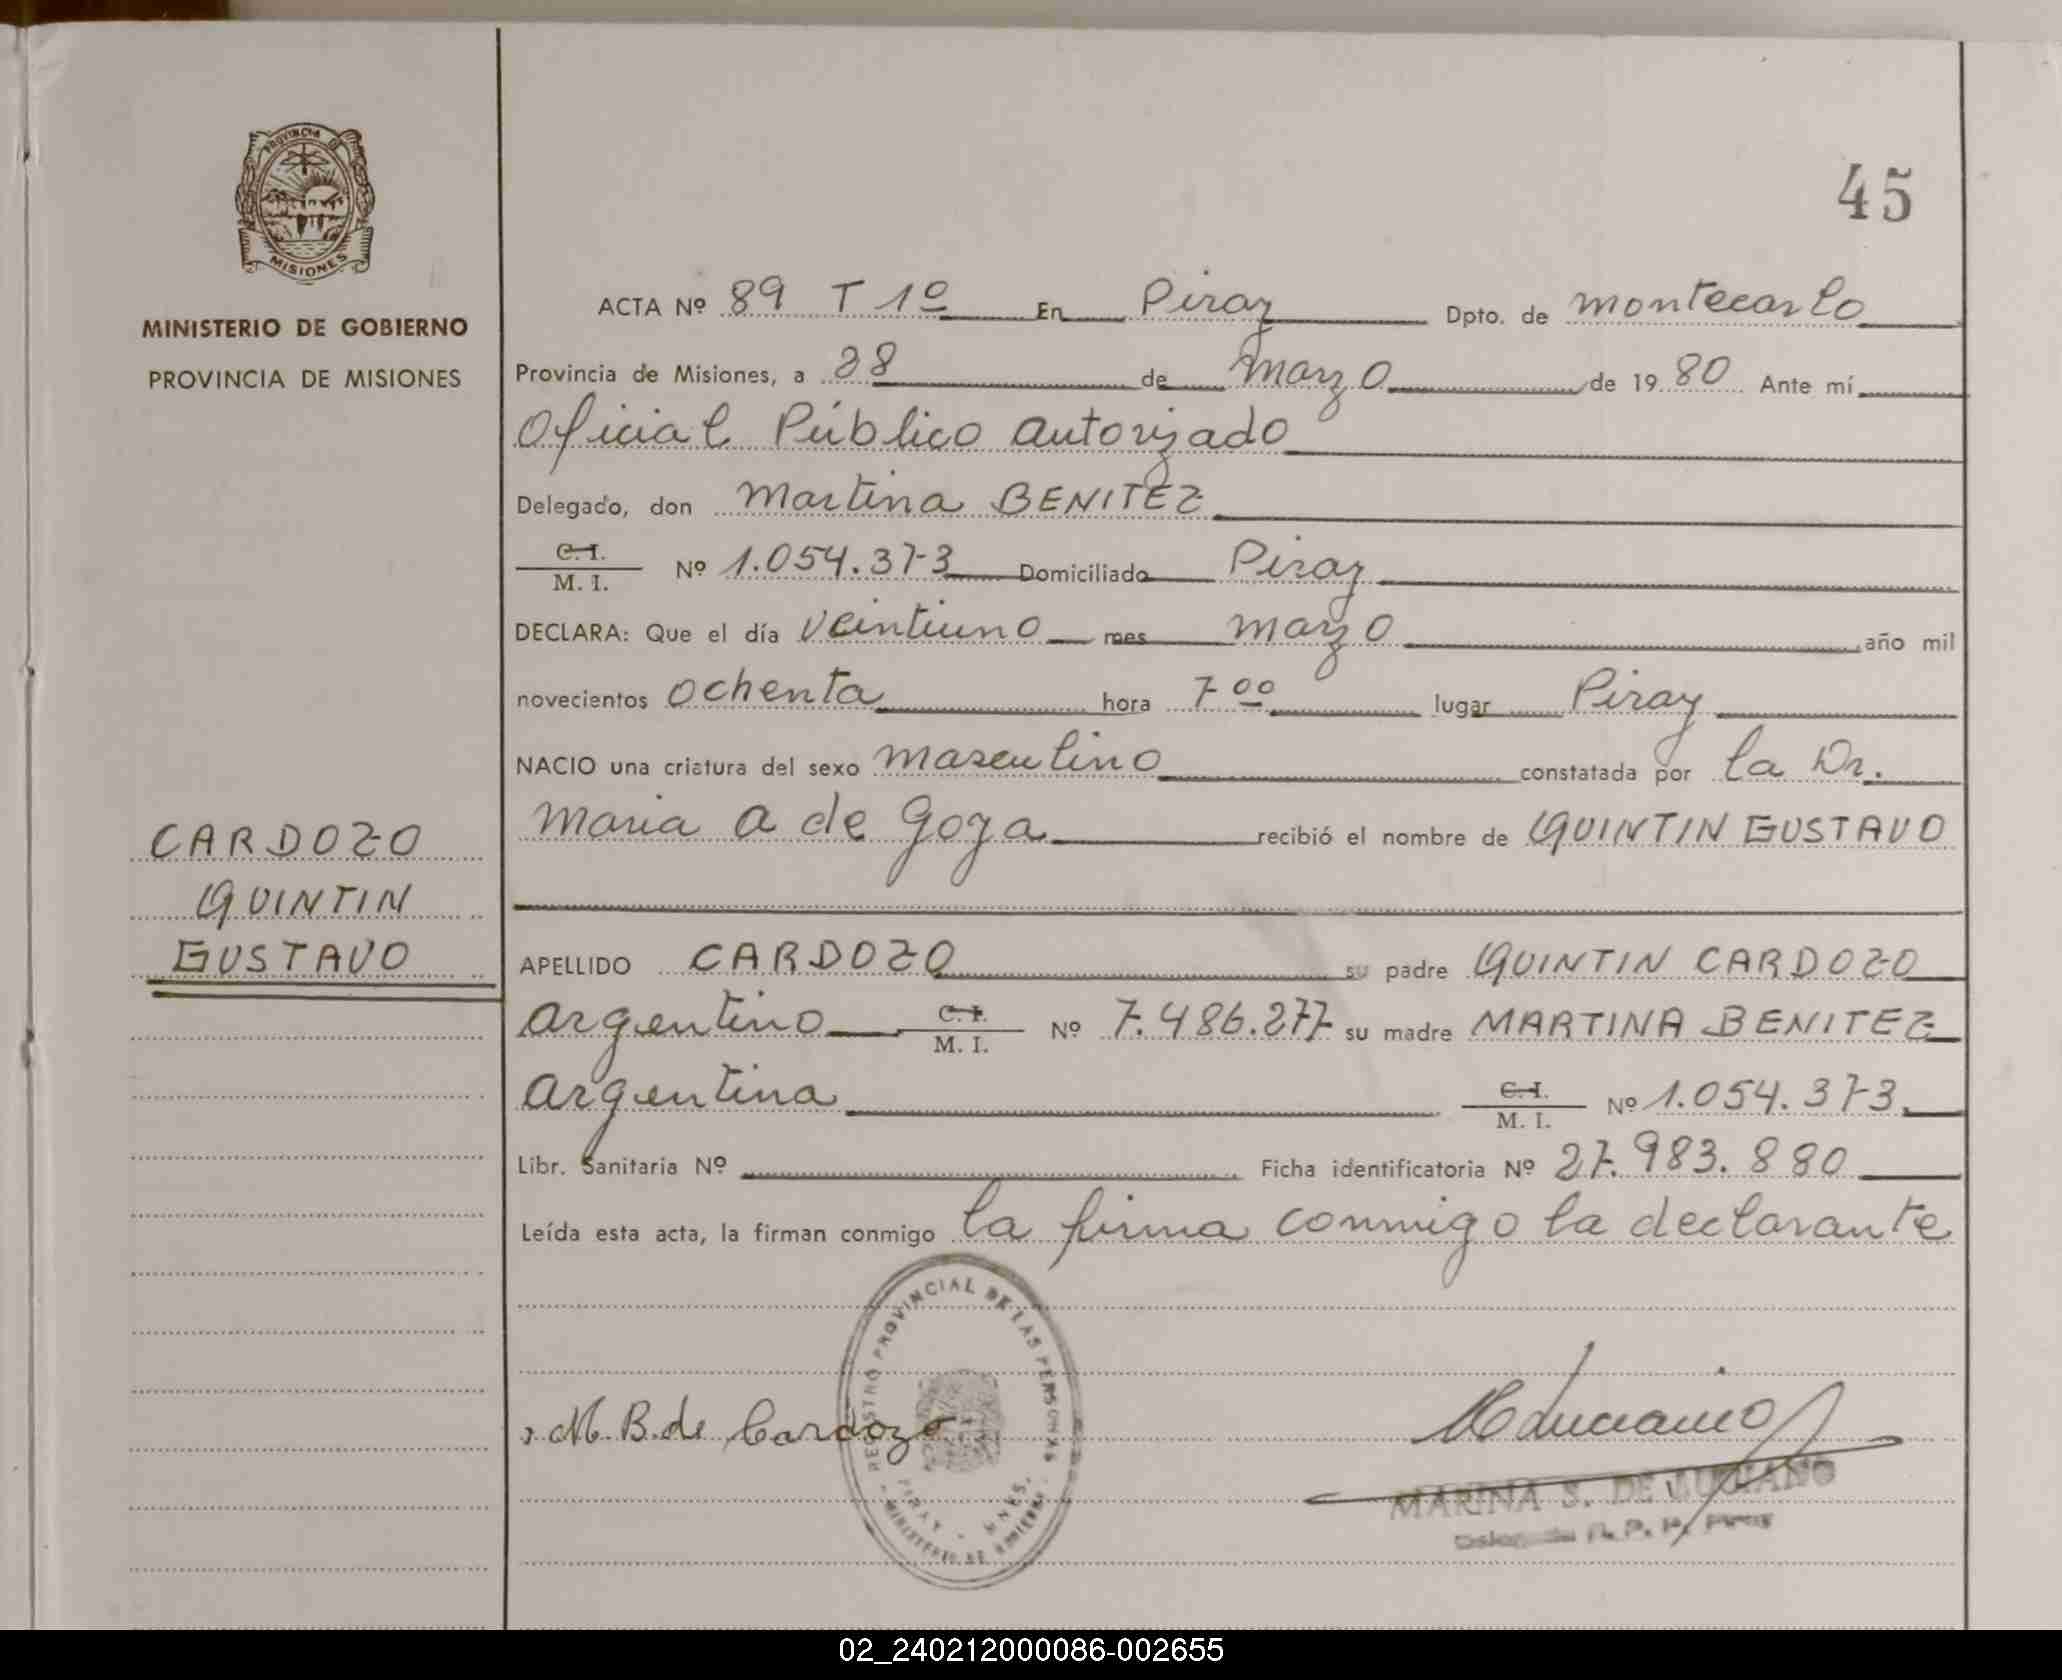 45
PROVINCIA DE
MISIONES
MINISTERIO DE GOBIERNO
PROVINCIA DE MISIONES
CARDOZO
QUINTIN
GUSTAVO
ACTA Nº 89 T 1º En Piray Dpto. de Montecarlo
Provincia de Misiones, a 28 de Marzo de 1980 Ante mí
Oficial Público Autorizado
Delegado, don Martina BENITEZ
C. I.
M. I. Nº 1.054.373 Domiciliado Piray
DECLARA: Que el día veintiuno mes marzo año mil
novecientos ochenta hora 7 00 lugar Piray
NACIO una criatura del sexo masculino constatada por la Dr.
Maria A de Goya recibió el nombre de QUINTIN GUSTAVO
APELLIDO CARDOZO su padre QUINTIN CARDOZO
argentino C. I. M. I. Nº 7.486.277 su madre MARTINA BENITEZ
argentina C. I. M. I. Nº 1.054.373.
Libr. Sanitaria Nº Ficha identificatoria Nº 27.983.880
Leída esta acta, la firman conmigo la firma conmigo la declarante
REGISTRO PROVINCIAL DE LAS PERSONAS
PIRAY - MNES.
MINISTERIO DE GOBIERNO
M. B. de Cardozo
MARINA S. DE LUCIANO
R. P. P. Piray
02_240212000086-002655